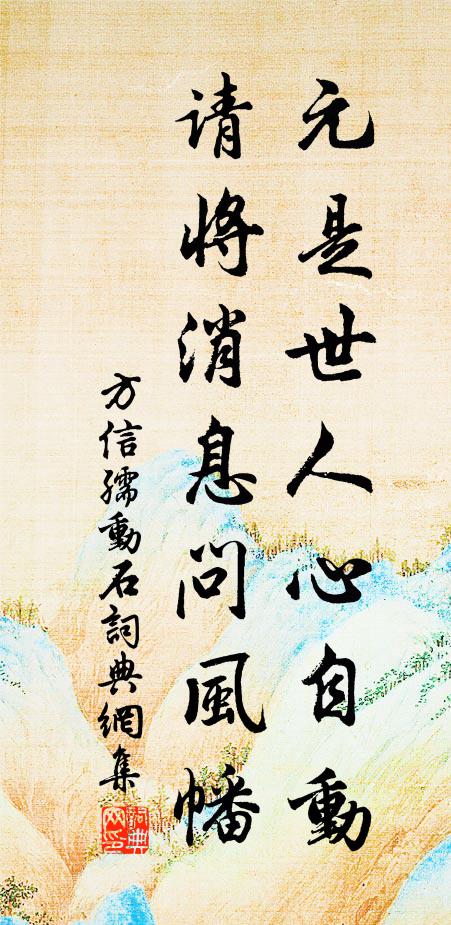 元是世人心自動
请將消息问風幡
方信孺動石詞典網集
詞典网印